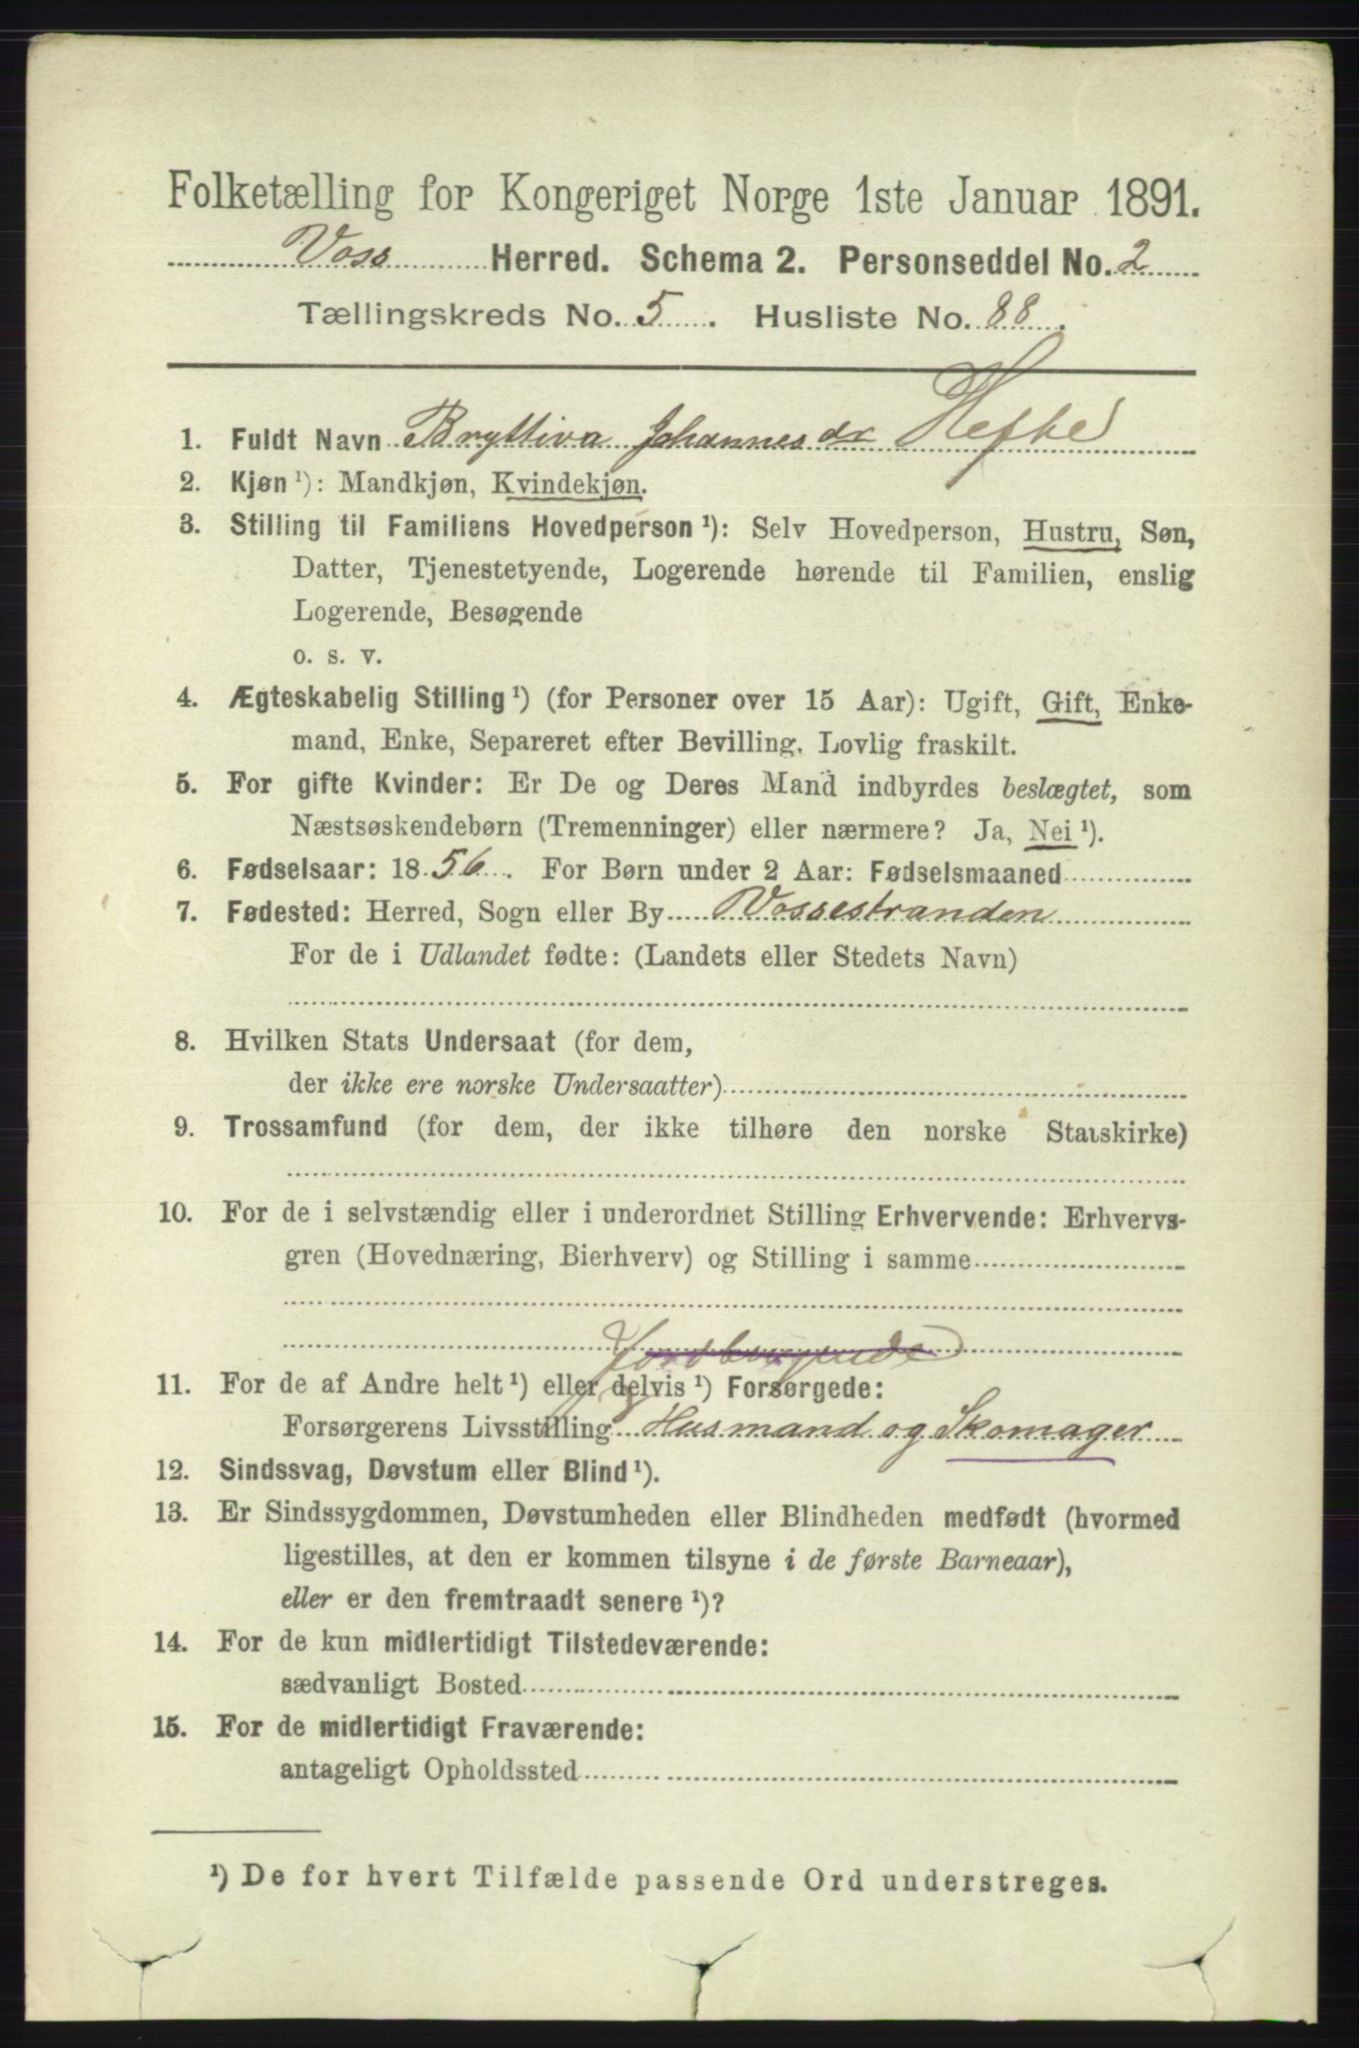 Folketælling for Kongeriget Norge 1ste Januar 1891.
Voss Herred. Schema 2. Personseddel No. 2
Tællingskreds No. 5. Husliste No. 88.
1. Fuldt Navn Bryttiva Johannesdr Hefte
2. Kjøn ¹): Mandkjøn, Kvindekjøn.
3. Stilling til Familiens Hovedperson ¹): Selv Hovedperson, Hustru, Søn,
Datter, Tjenestetyende, Logerende hørende til Familien, enslig
Logerende, Besøgende
o. s. v.
4. Ægteskabelig Stilling ¹) (for Personer over 15 Aar): Ugift, Gift, Enke-
mand, Enke, Separeret efter Bevilling. Lovlig fraskilt.
5. For gifte Kvinder: Er De og Deres Mand indbyrdes beslægtet, som
Næstsøskendebørn (Tremenninger) eller nærmere? Ja, Nei ¹).
6. Fødselsaar: 1856. For Børn under 2 Aar: Fødselsmaaned
7. Fødested: Herred, Sogn eller By Vossestranden
For de i Udlandet fødte: (Landets eller Stedets Navn)
8. Hvilken Stats Undersaat (for dem,
der ikke ere norske Undersaatter)
9. Trossamfund (for dem, der ikke tilhøre den norske Statskirke)
10. For de i selvstændig eller i underordnet Stilling Erhvervende: Erhvervs-
gren (Hovednæring, Bierhverv) og Stilling i samme
jordbrugende
11. For de af Andre helt ¹) eller delvis ¹) Forsørgede:
Forsørgerens Livsstilling Husmand og Skomager
12. Sindssvag, Døvstum eller Blind ¹).
13. Er Sindssygdommen, Døvstumheden eller Blindheden medfødt (hvormed
ligestilles, at den er kommen tilsyne i de første Barneaar),
eller er den fremtraadt senere ¹)?
14. For de kun midlertidigt Tilstedeværende:
sædvanligt Bosted
15. For de midlertidigt Fraværende:
antageligt Opholdssted
¹) De for hvert Tilfælde passende Ord understreges.